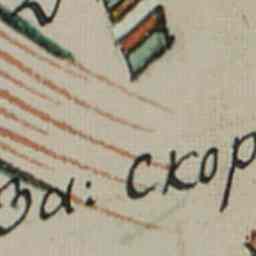 за: скор